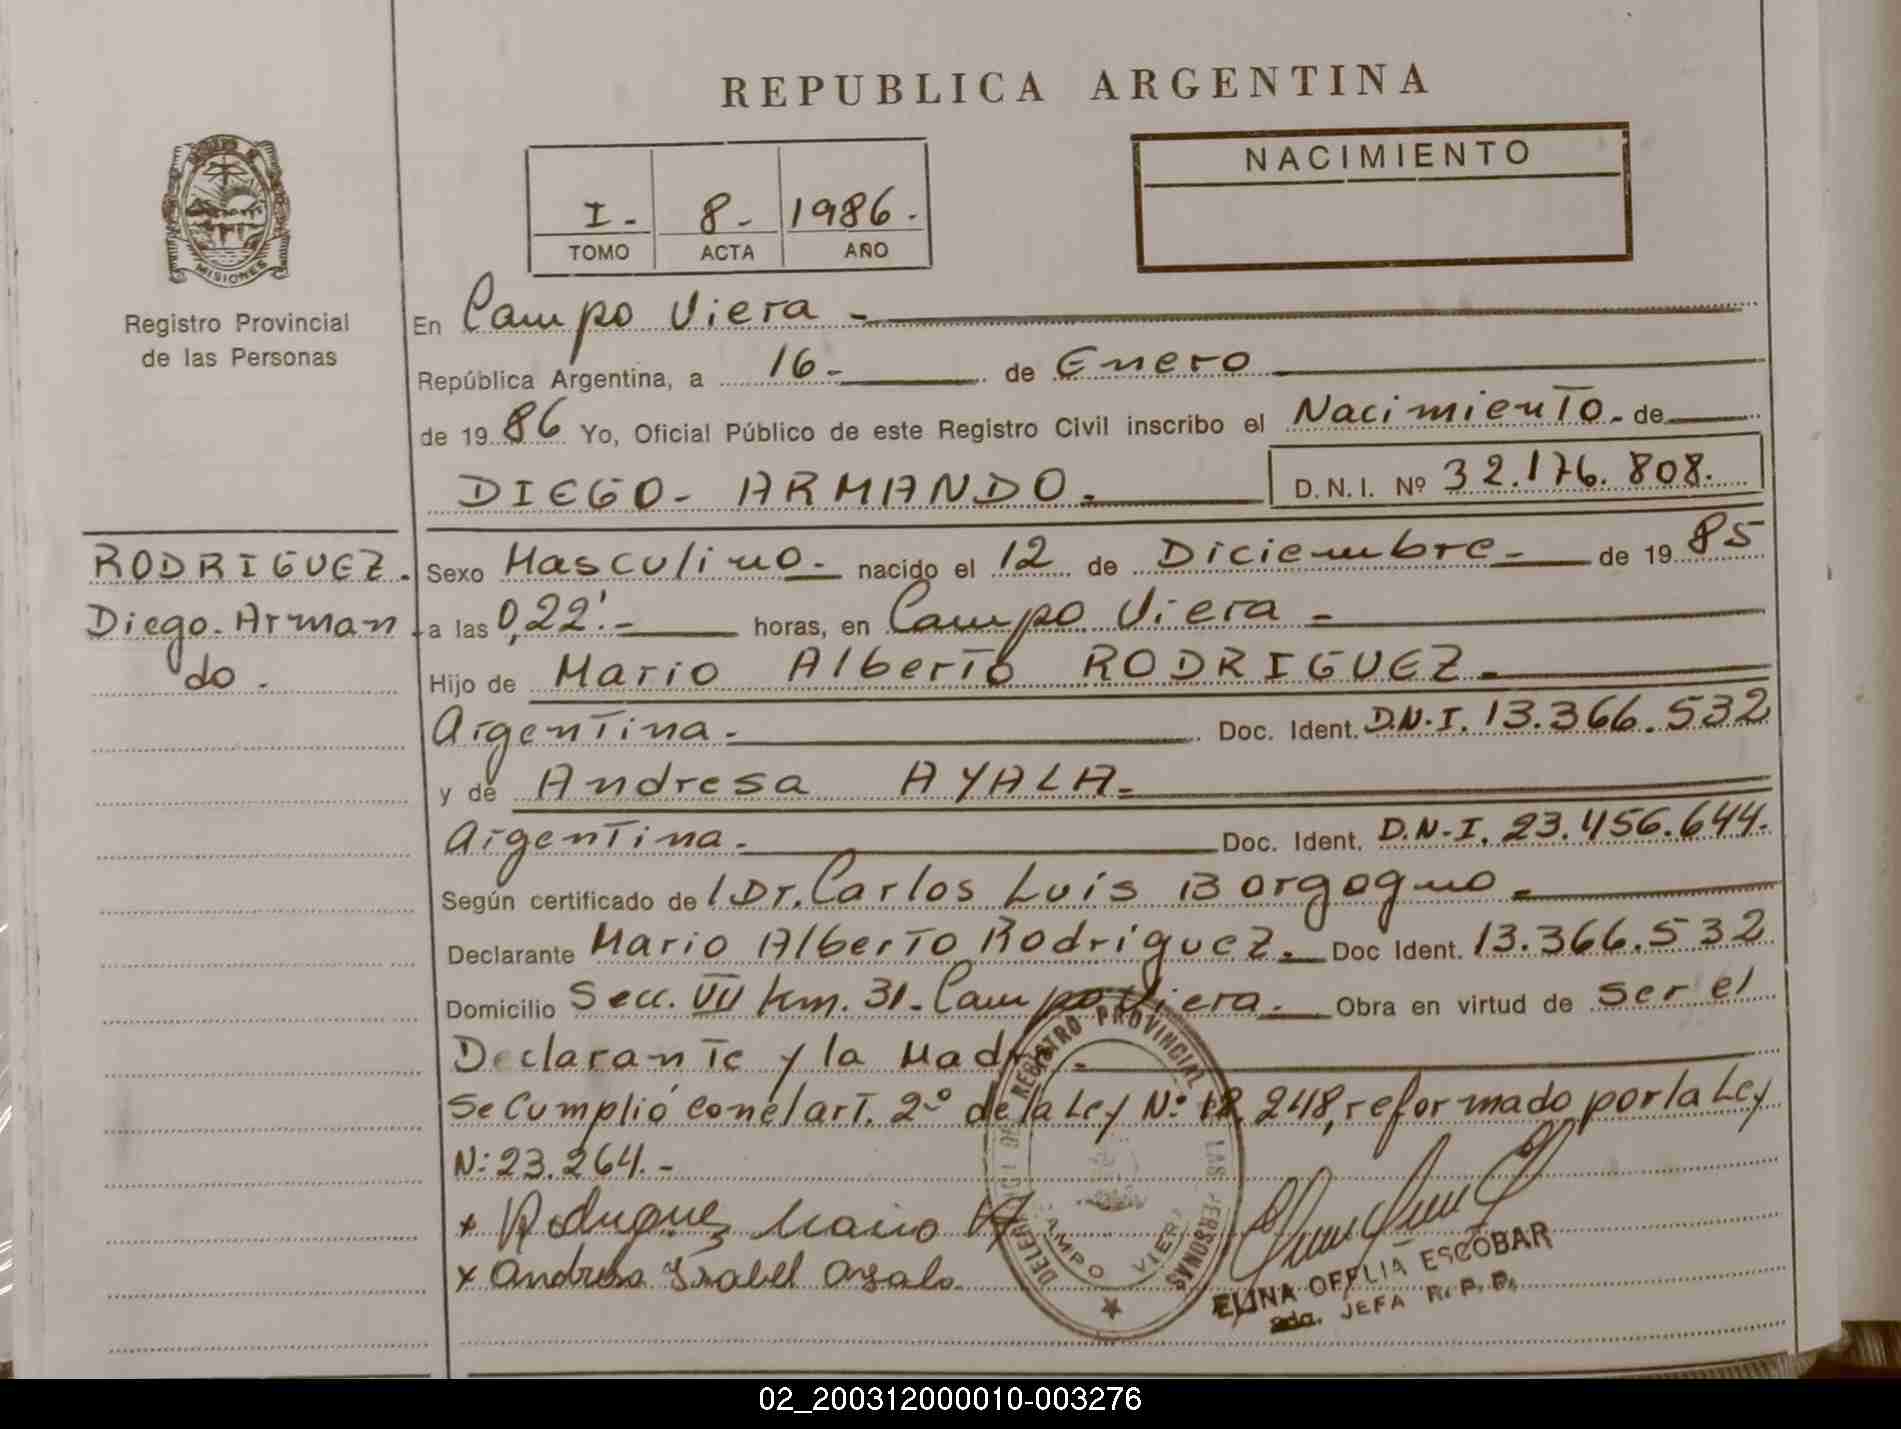 REPUBLICA ARGENTINA
I.- 8.- 1986.-
TOMO ACTA AÑO
NACIMIENTO
MISIONES
Registro Provincial
de las Personas
En Campo Viera -
República Argentina, a 16.- de Enero
de 1986 Yo, Oficial Público de este Registro Civil inscribo el Nacimiento.- de
DIEGO- ARMANDO.- D. N. I. Nº 32.176.808.
RODRIGUEZ.
Diego Arman
do.
Sexo Masculino.- nacido el 12 de Diciembre.- de 1985
a las 0,22'.- horas, en Campo Viera -
Hijo de Mario Alberto RODRIGUEZ.-
Argentina.- Doc. Ident. D.N.I. 13.366.532
y de Andresa AYALA.-
Argentina.- Doc. Ident. D.N.I. 23.456.644.
Según certificado de l Dr. Carlos Luis Borgogno.-
Declarante Mario Alberto Rodriguez.- Doc Ident. 13.366.532
Domicilio Secc. VII km. 31- Campo Viera.- Obra en virtud de ser el
Declarante y la Madre.-
Se Cumplió con el art. 2º de la Ley Nº 18.248, reformado por la Ley
N: 23.264.-
x Rodriguez Mario A
x Andresa Isabel Ayala
REGISTRO PROVINCIAL DE LAS PERSONAS
CAMPO VIERA
ELINA OFELIA ESCOBAR
JEFA R. P. P.
02_200312000010-003276